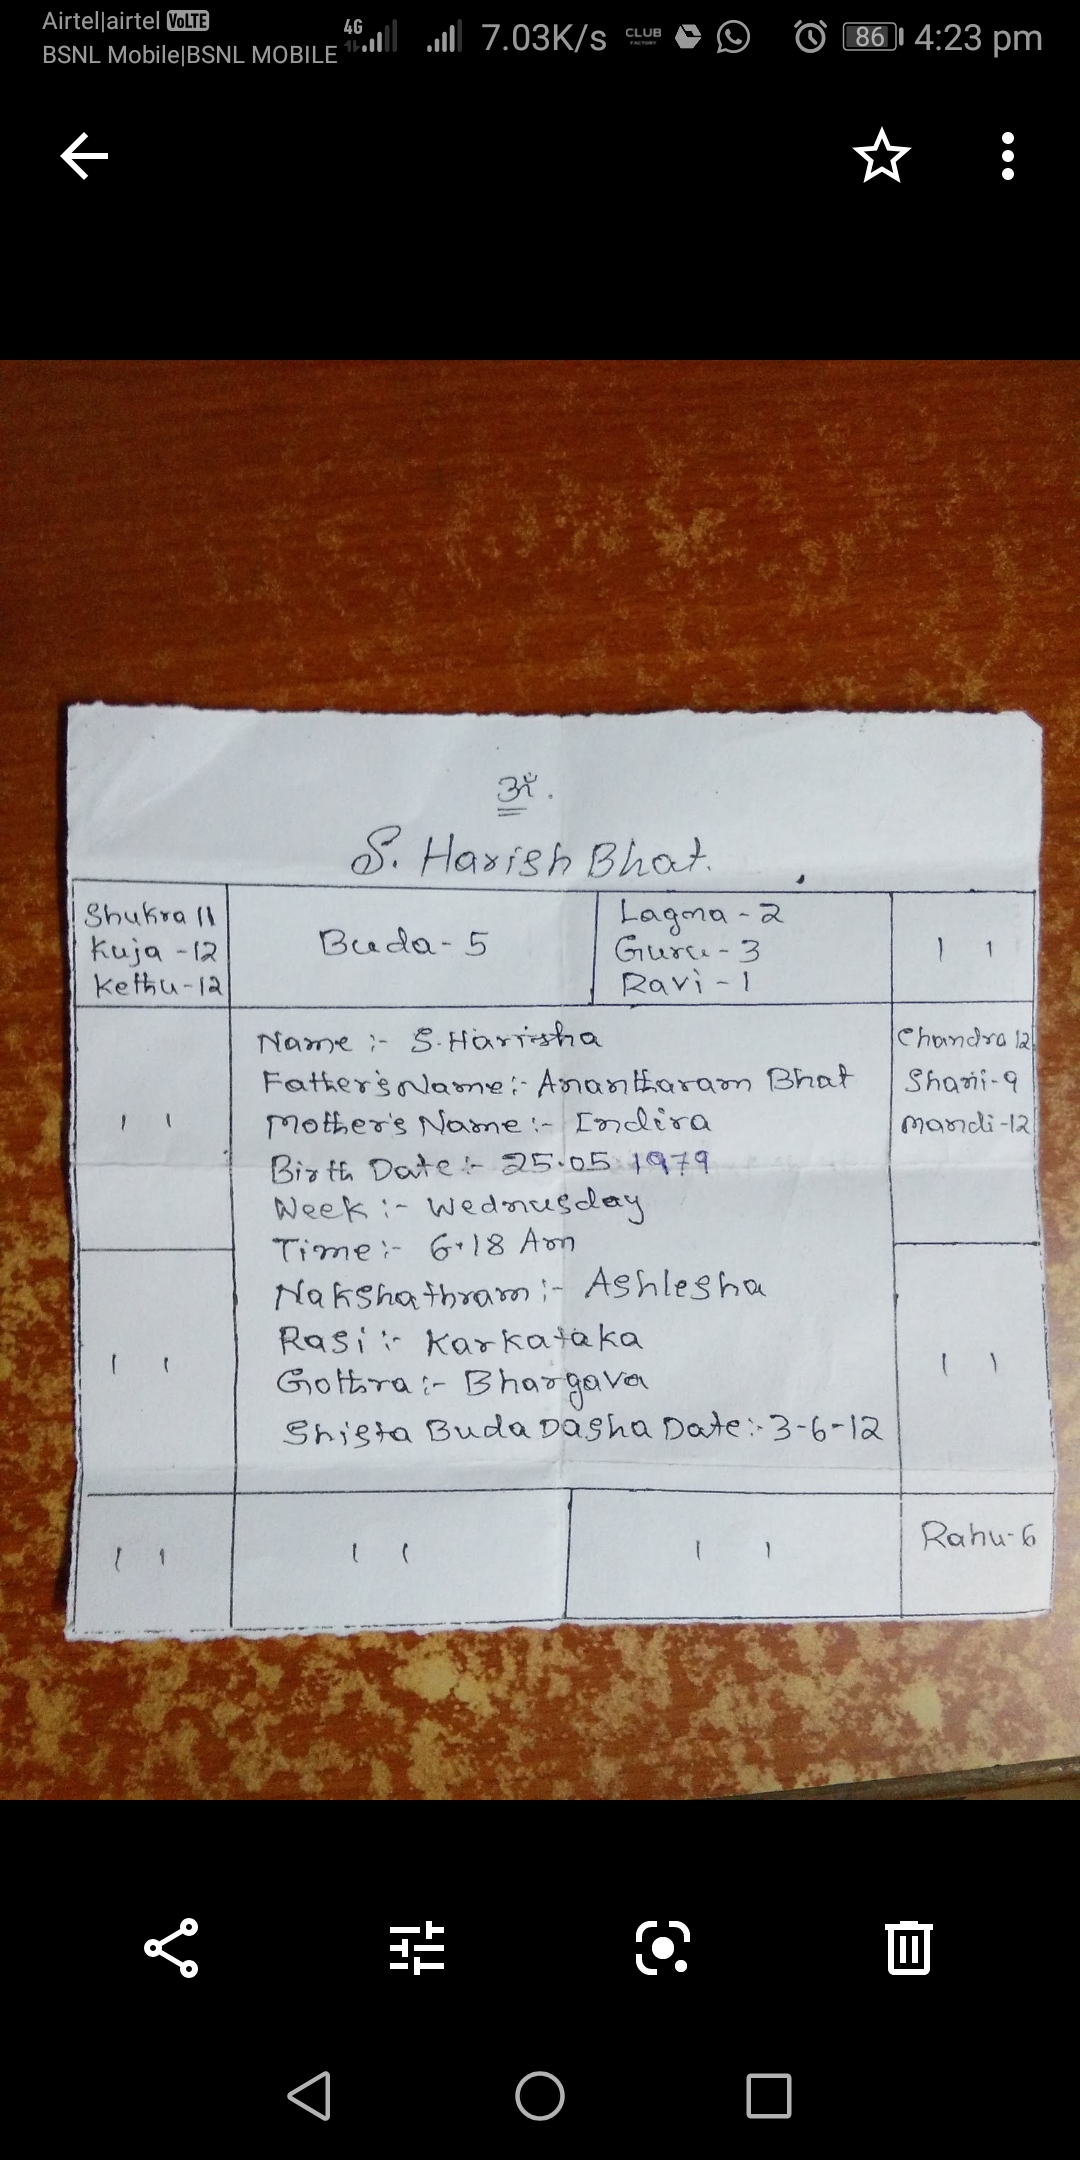 Airtel|airtel VoLTE
BSNL Mobile|BSNL MOBILE 4G 7.03K/s CLUB FACTORY 86 4:23 pm
ॐ.
S. Harish Bhat.
Shukra 11
Kuja -12
Kethu-12
Buda- 5
Lagna - 2
Guru - 3
Ravi - 1
ı ı
Name :- S.Harisha
Father's Name:- Anantharam Bhat
Mother's Name:- Indira
Birth Date:- 25.05.1979
Week :- Wednusday
Time:- 6.18 Am
Nakshathram:- Ashlesha
Rasi :- Karkataka
Gothra:- Bhargava
Shista Buda Dasha Date:-3-6-12
Chandra 12
Shani-9
Mandi-12
ı ı
ı ı
ı ı
ı ı
ı ı
ı ı
Rahu-6